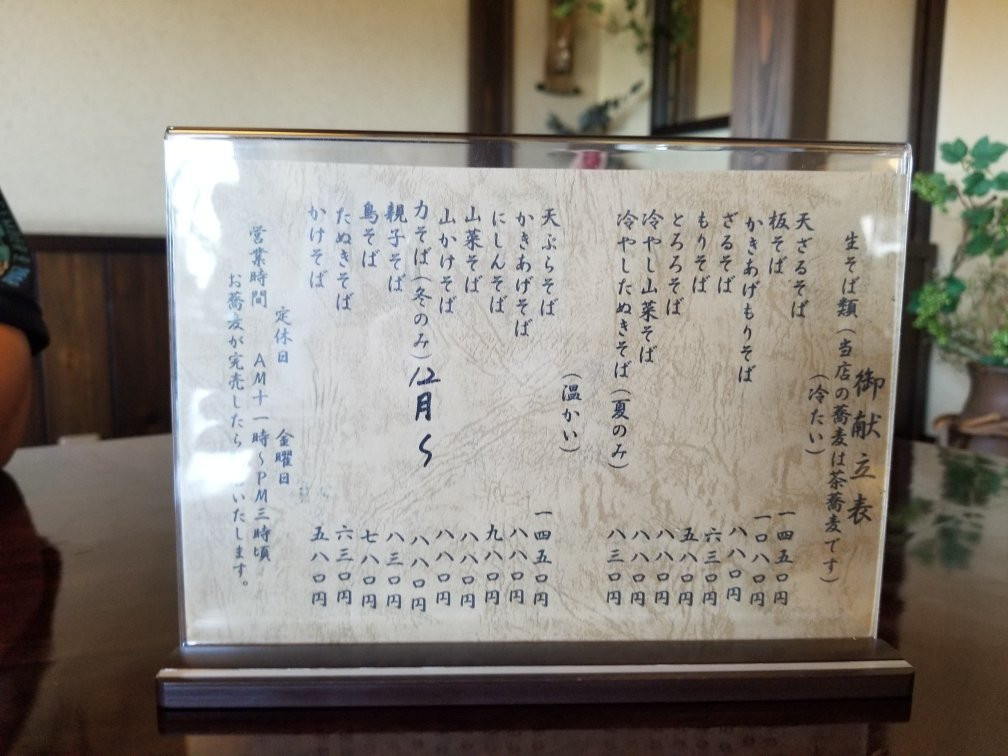 御献立表
生そば類(当店の蕎麦は茶蕎麦です)
(冷たい)
天ざるそば 一四五〇円
板そば 一〇八〇円
かきあげもりそば 八八〇円
ざるそば 六三〇円
もりそば 五八〇円
とろろそば 八八〇円
冷やし山菜そば 八八〇円
冷やしたぬきそば(夏のみ) 八三〇円
(温かい)
天ぷらそば 一四五〇円
かきあげそば 八八〇円
にしんそば 九八〇円
山菜そば 八八〇円
山かけそば 八八〇円
力そば(冬のみ)12月〜 八八〇円
親子そば 八三〇円
鳥そば 七八〇円
たぬきそば 六三〇円
かけそば 五八〇円
定休日 金曜日
営業時間 AM十一時〜PM三時頃
お蕎麦が完売したら いたします。